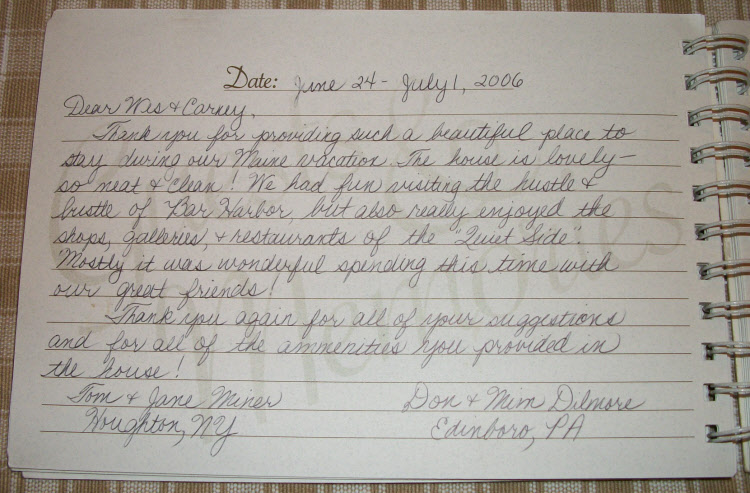 Date: June 24 - July 1, 2006
Dear Wes & Carney,
Thank you for providing such a beautiful place to
stay during our Maine vacation. The house is lovely—
so neat & clean! We had fun visiting the hustle &
bustle of Bar Harbor, but also really enjoyed the
shops, galleries, & restaurants of the "Quiet Side".
Mostly it was wonderful spending this time with
our great friends!
Thank you again for all of your suggestions
and for all of the ammenities you provided in
the house!
Tom & Jane Miner
Houghton, NY
Don & Mim Dilmore
Edinboro, PA
Memories